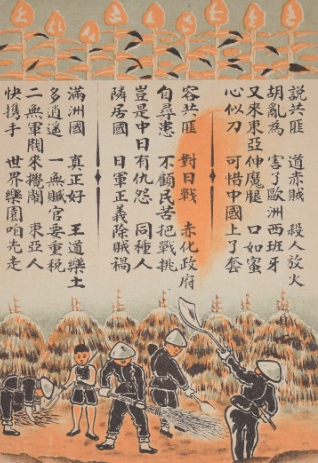 說共匪 道赤賊 殺人放火
胡亂為 害了歐洲西班牙
又來東亞伸魔腿 口如蜜
心似刀 可惜中國上了套
容共匪 對日戰 赤化政府
自尋患 不顧民苦把戰挑
豈是中日有仇怨 同種人
隣居國 日軍正義除賊禍
滿洲國 真正好 王道樂土
多逍遙 一無贓官要重稅
二無軍閥來攪鬧 東亞人
快携手 世界樂園咱先走